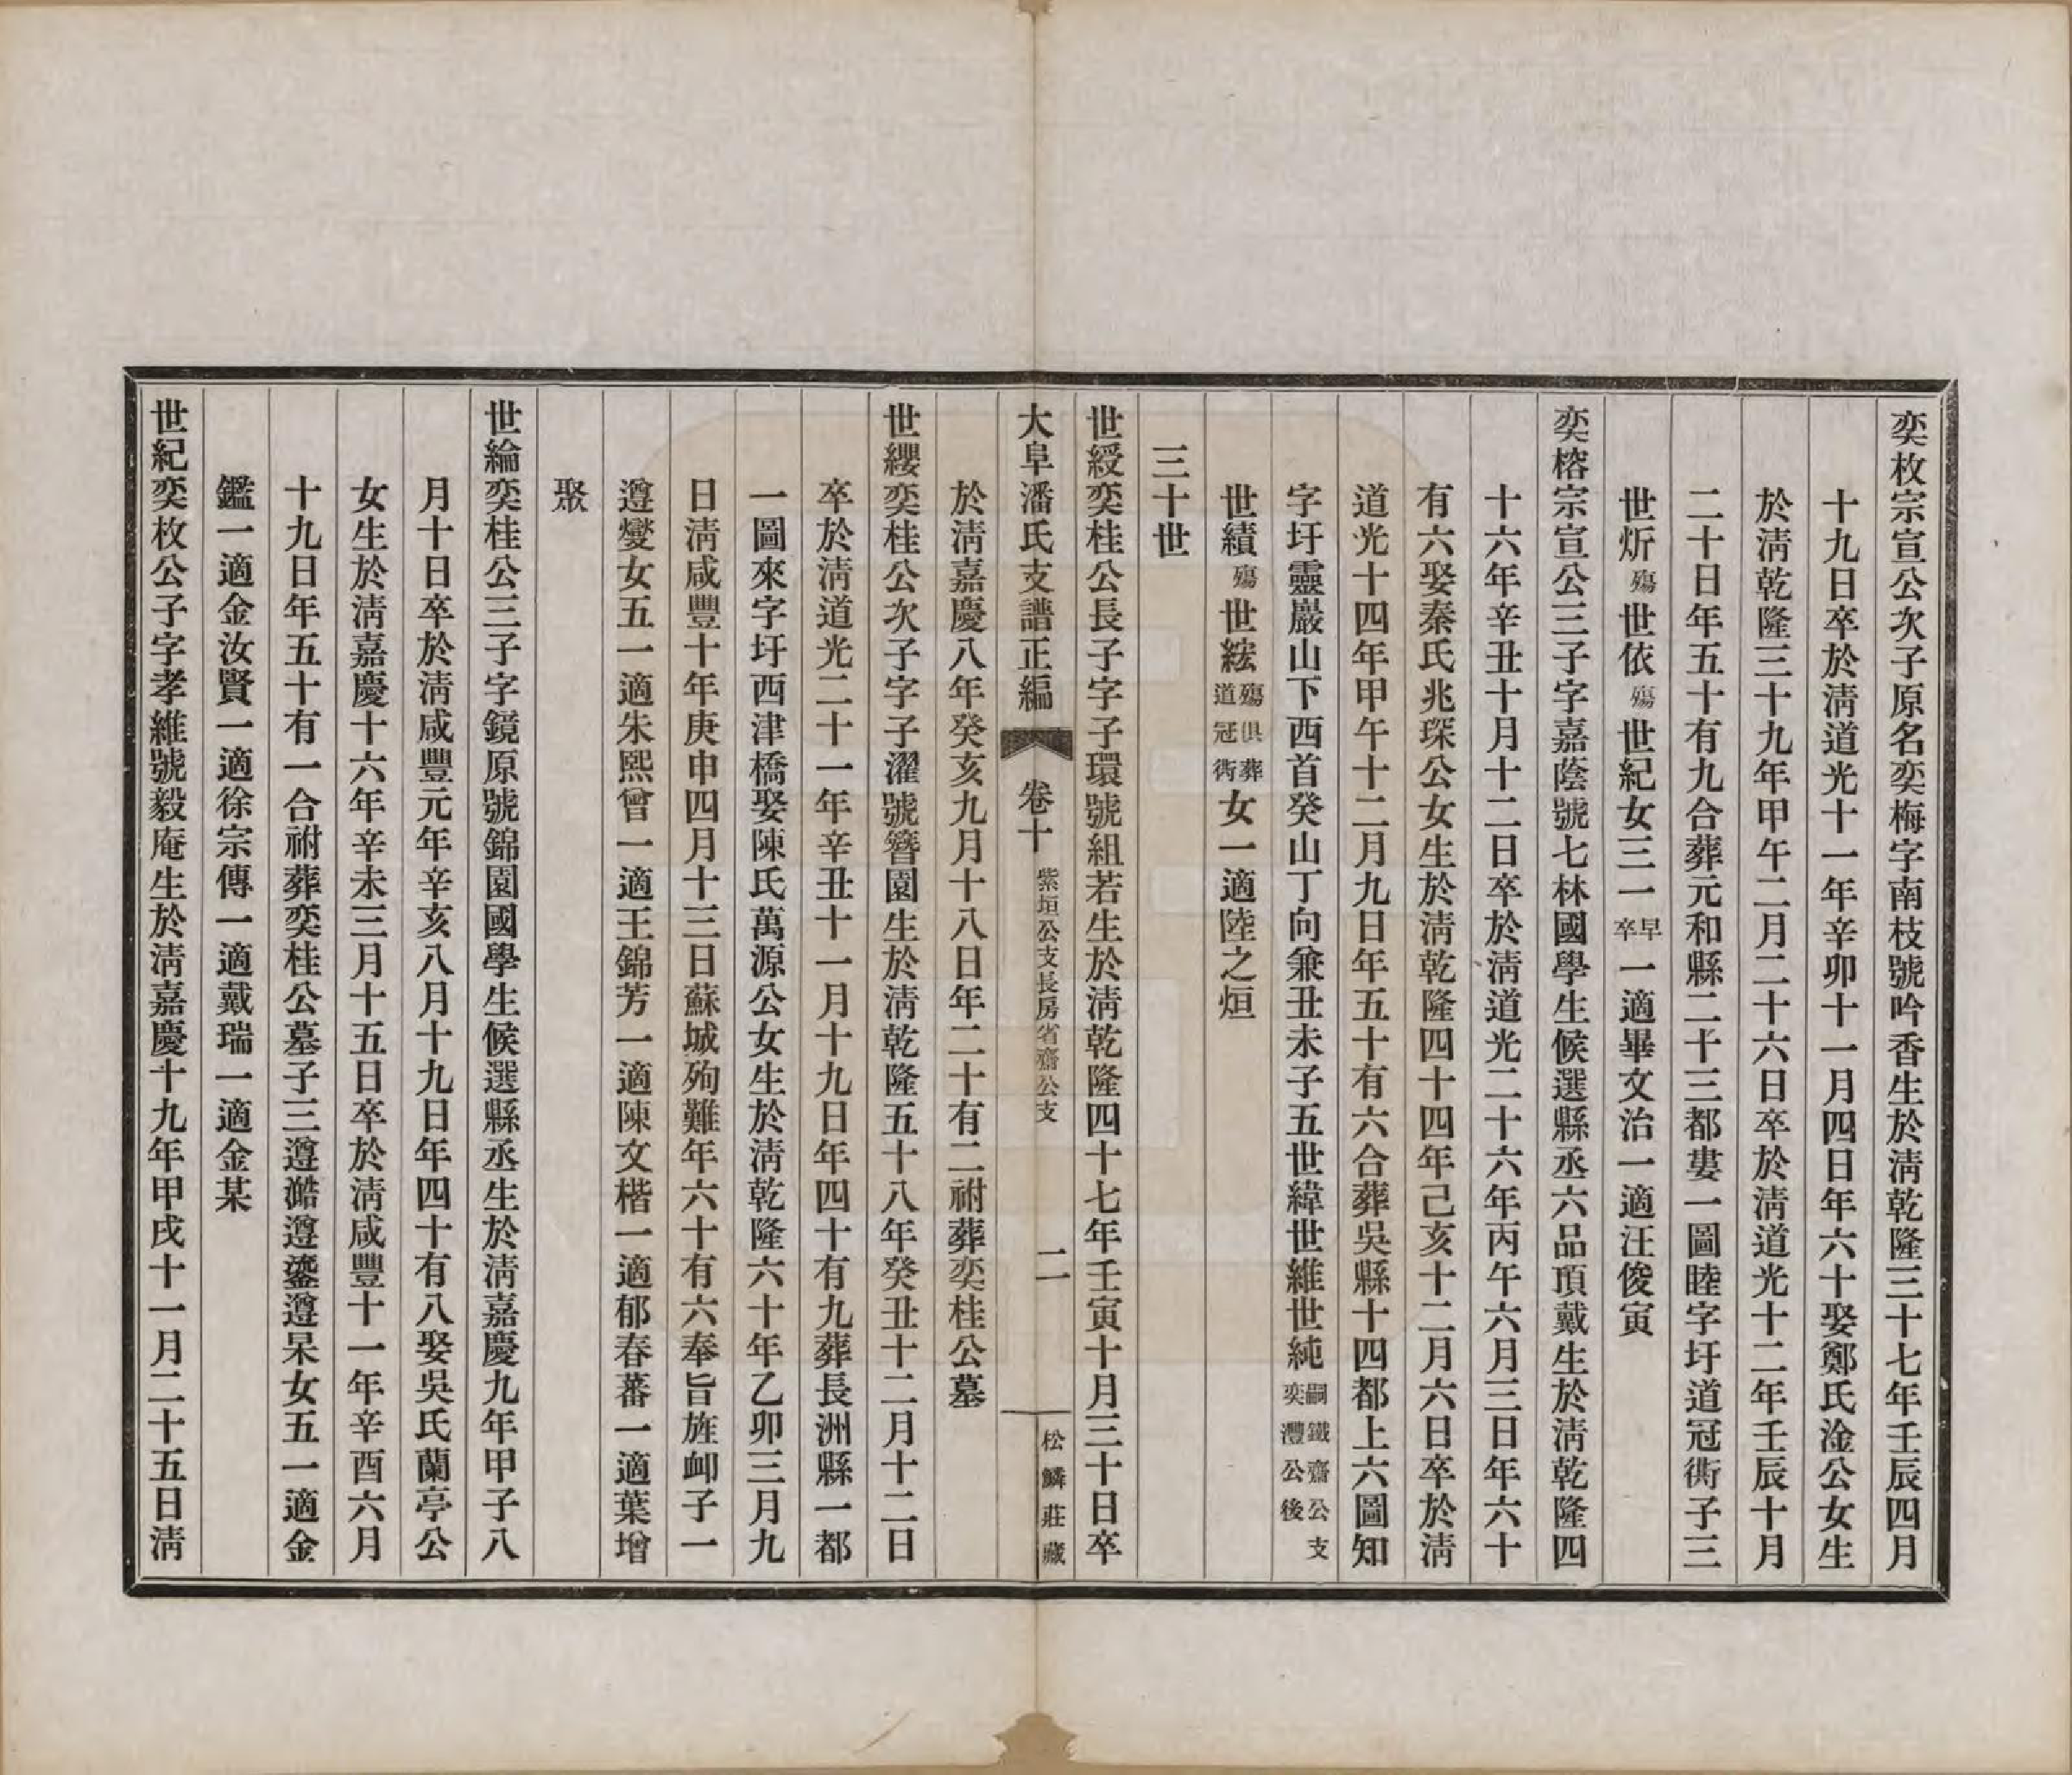 奕枚宗宣公次子原名奕梅字南枝號吟香生於淸乾隆三十七年壬辰四月
十九日卒於淸道光十一年辛卯十一月四日年六十娶鄭氏淦公女生
於淸乾隆三十九年甲午二月二十六日卒於淸道光十二年壬辰十月
二十日年五十有九合葬元和縣二十三都婁一圖睦字圩道冠衖子三
世炘殤世依殤世紀女三一早卒一適畢文治一適汪俊寅
奕榕宗宣公三子字嘉蔭號七林國學生候選縣丞六品頂戴生於淸乾隆四
十六年辛丑十月十二日卒於淸道光二十六年丙午六月三日年六十
有六娶秦氏兆琛公女生於淸乾隆四十四年己亥十二月六日卒於淸
道光十四年甲午十二月九日年五十有六合葬吳縣十四都上六圖知
字圩靈巖山下西首癸山丁向兼丑未子五世緯世維世純嗣鐵齋公支奕灃公後
世績殤世紘殤俱葬道冠衖女一適陸之烜
三十世
世綬奕桂公長子字子環號組若生於淸乾隆四十七年壬寅十月三十日卒
大阜潘氏支譜正編 卷十 紫垣公支長房省齋公支 二 松鱗莊藏
於淸嘉慶八年癸亥九月十八日年二十有二祔葬奕桂公墓
世纓奕桂公次子字子濯號簪園生於淸乾隆五十八年癸丑十二月十二日
卒於淸道光二十一年辛丑十一月十九日年四十有九葬長洲縣一都
一圖來字圩西津橋娶陳氏萬源公女生於淸乾隆六十年乙卯三月九
日淸咸豐十年庚申四月十三日蘇城殉難年六十有六奉旨旌卹子一
遵燮女五一適朱熙曾一適王錦芳一適陳文楷一適郁春蕃一適葉增
聚
世綸奕桂公三子字鏡原號錦園國學生候選縣丞生於淸嘉慶九年甲子八
月十日卒於淸咸豐元年辛亥八月十九日年四十有八娶吳氏蘭亭公
女生於淸嘉慶十六年辛未三月十五日卒於淸咸豐十一年辛酉六月
十九日年五十有一合祔葬奕桂公墓子三遵澔遵鎏遵杲女五一適金
鑑一適金汝賢一適徐宗傳一適戴瑞一適金某
世紀奕枚公子字孝維號毅庵生於淸嘉慶十九年甲戌十一月二十五日淸